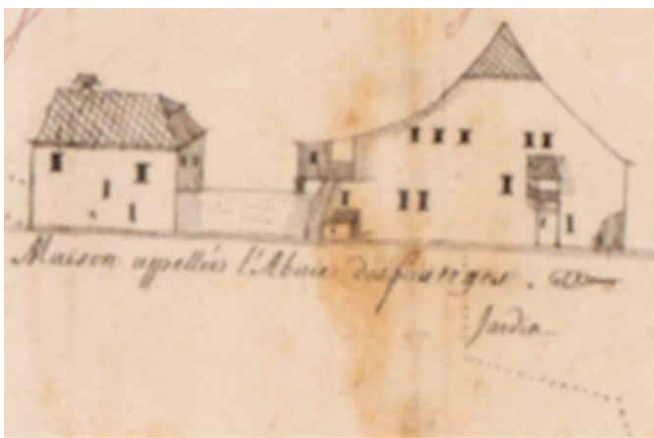 Maison appellées l'Abaie desfauerges.
Jardin